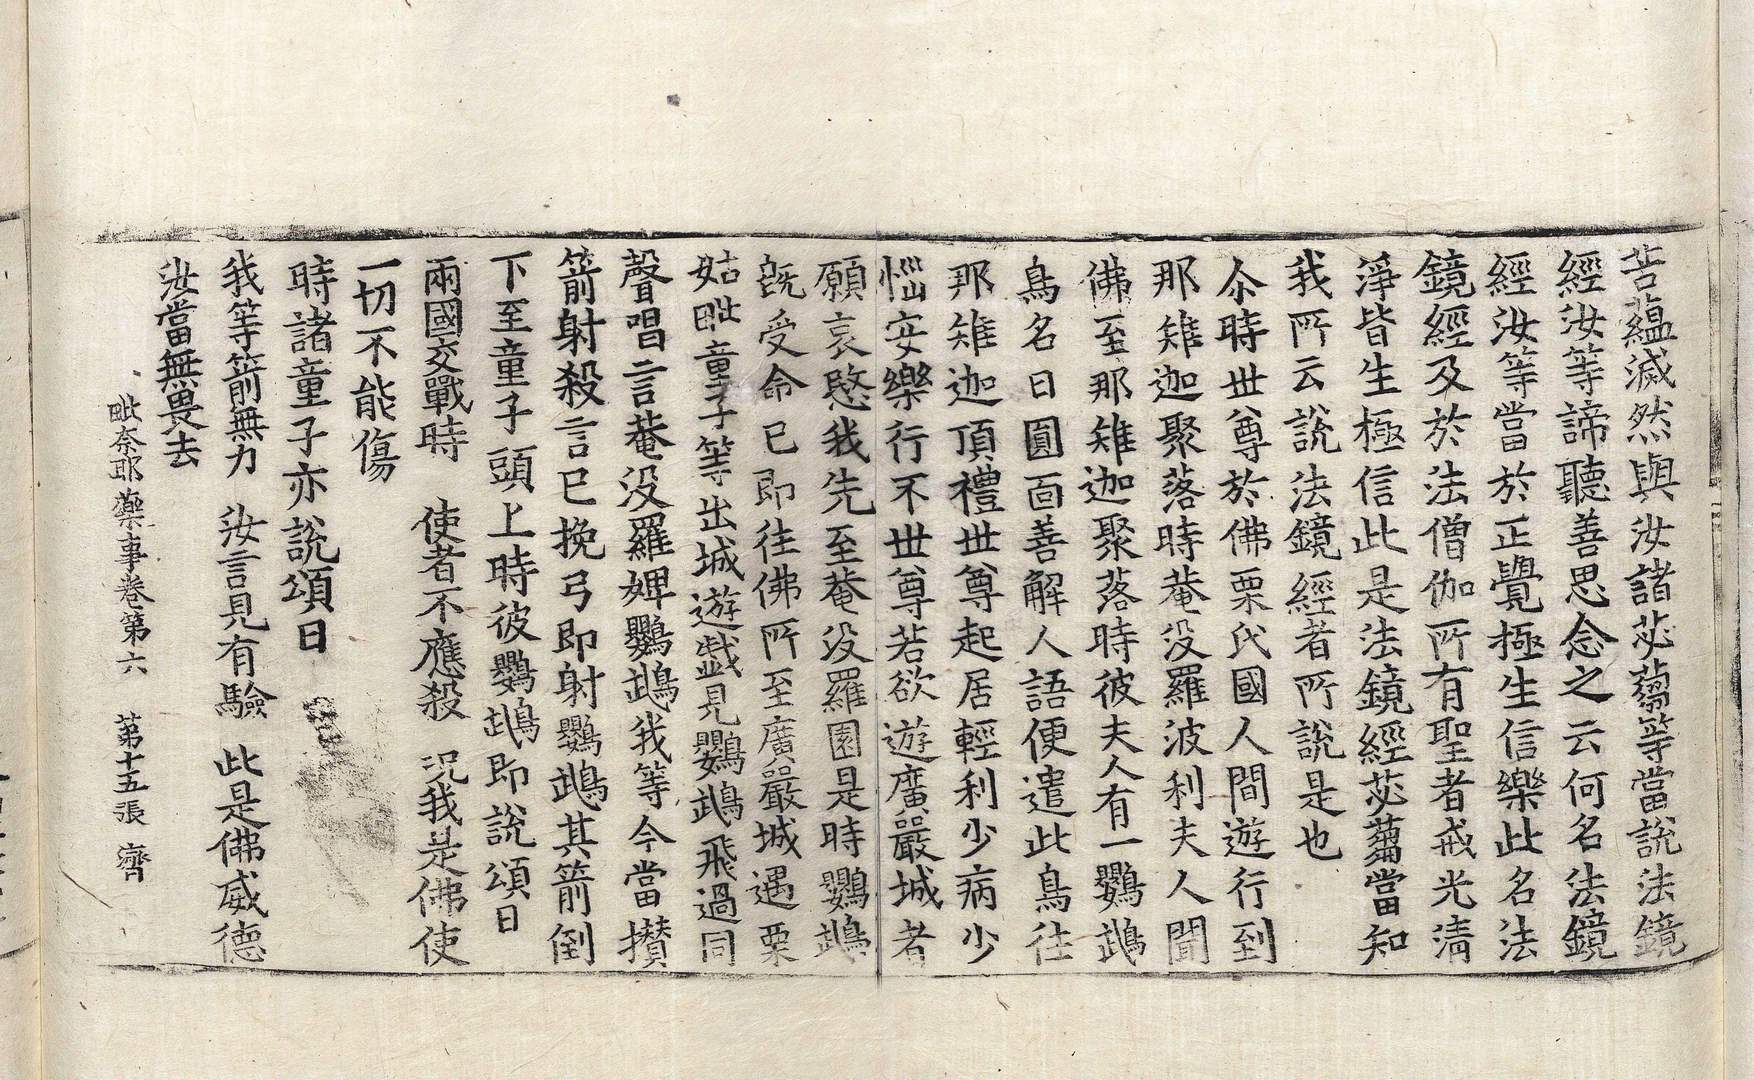 苦蘊滅然與汝諸苾蒭等當說法鏡
經汝等諦聽善思念之云何名法鏡
經汝等當於正覺極生信樂此名法
鏡經及於法僧伽所有聖者戒光清
淨皆生極信此是法鏡經苾蒭當知
我所云說法鏡經者所說是也
尒時世尊於佛栗氏國人間遊行到
那雉迦聚落時菴没羅波利夫人聞
佛至那雉迦聚落時彼夫人有一鸚鵡
鳥名曰圓面善解人語便遣此鳥往
那雉迦頂禮世尊起居輕利少病少
惱安樂行不世尊若欲遊廣嚴城者
願哀愍我先至菴没羅園是時鸚鵡
旣受命已即往佛所至廣嚴城遇栗
姑毗童子等出城遊戱見鸚鵡飛過同
聲唱言菴没羅婢鸚鵡我等今當攢
箭射殺言已挽弓即射鸚鵡其箭倒
下至童子頭上時彼鸚鵡即說頌曰
兩國交戰時　使者不應殺　況我是佛使
一切不能傷
時諸童子亦說頌曰
我等箭無力　汝言見有驗　此是佛威德
汝當無畏去
毗奈耶藥事卷第六　第十五張　齊